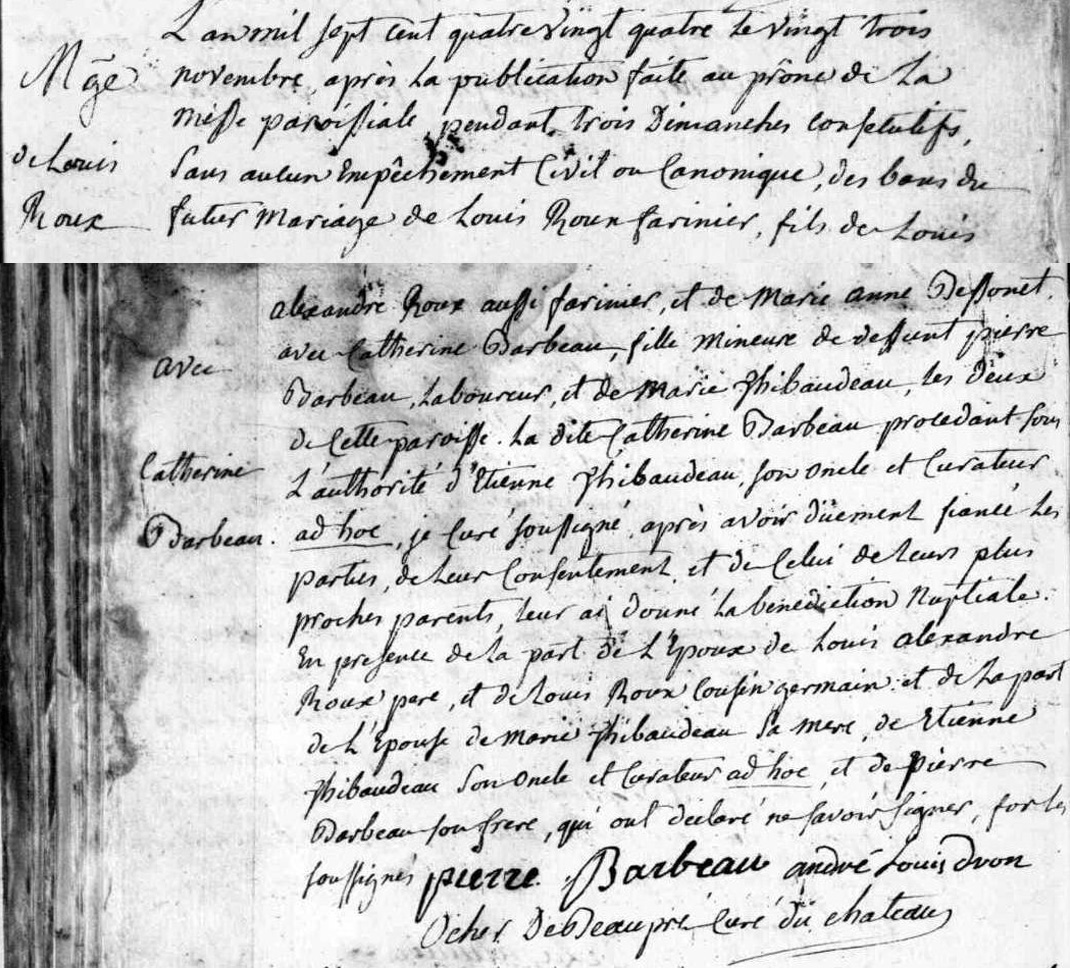 L'an mil sept cent quatre vingt quatre le vingt trois
Mge novembre, après la publication faite au prône de la
messe paroissiale, pendant trois Dimanches consecutifs,
de Louis Sans aucun Empêchement Civil ou Canonique, des bans du
Roux futur Mariage de Louis Roux farinier, fils de Louis
alexandre Roux aussi farinier, et de Marie anne Dessonet,
avec avec Catherine Barbeau, fille Mineure de deffunt pierre
Barbeau, Laboureur, et de Marie Thibaudeau, les Deux
de Cette paroisse. La dite Catherine Barbeau procedant sous
Catherine L'authorité d'Etienne Thibaudeau, son oncle et Curateur
Barbeau. ad hoc, je Curé soussigné, après avoir düement fiancé les
parties, de leur Consentement, et de Celui de leurs plus
proches parents, leur ai donné la bénédiction Nuptiale.
En presence de la part de L'Epoux de Louis alexandre
Roux pere, et de Louis Roux Cousin germain et de la part
de L'Epouse de Marie Thibaudeau Sa mere, de Etienne
Thibaudeau Son oncle et Curateur ad hoc, et de pierre
Barbeau son frere, qui ont déclaré ne savoir signer, fors les
soussignés pierre Barbeau andré Louis
Ocher DeBeaupré Curé du chateau